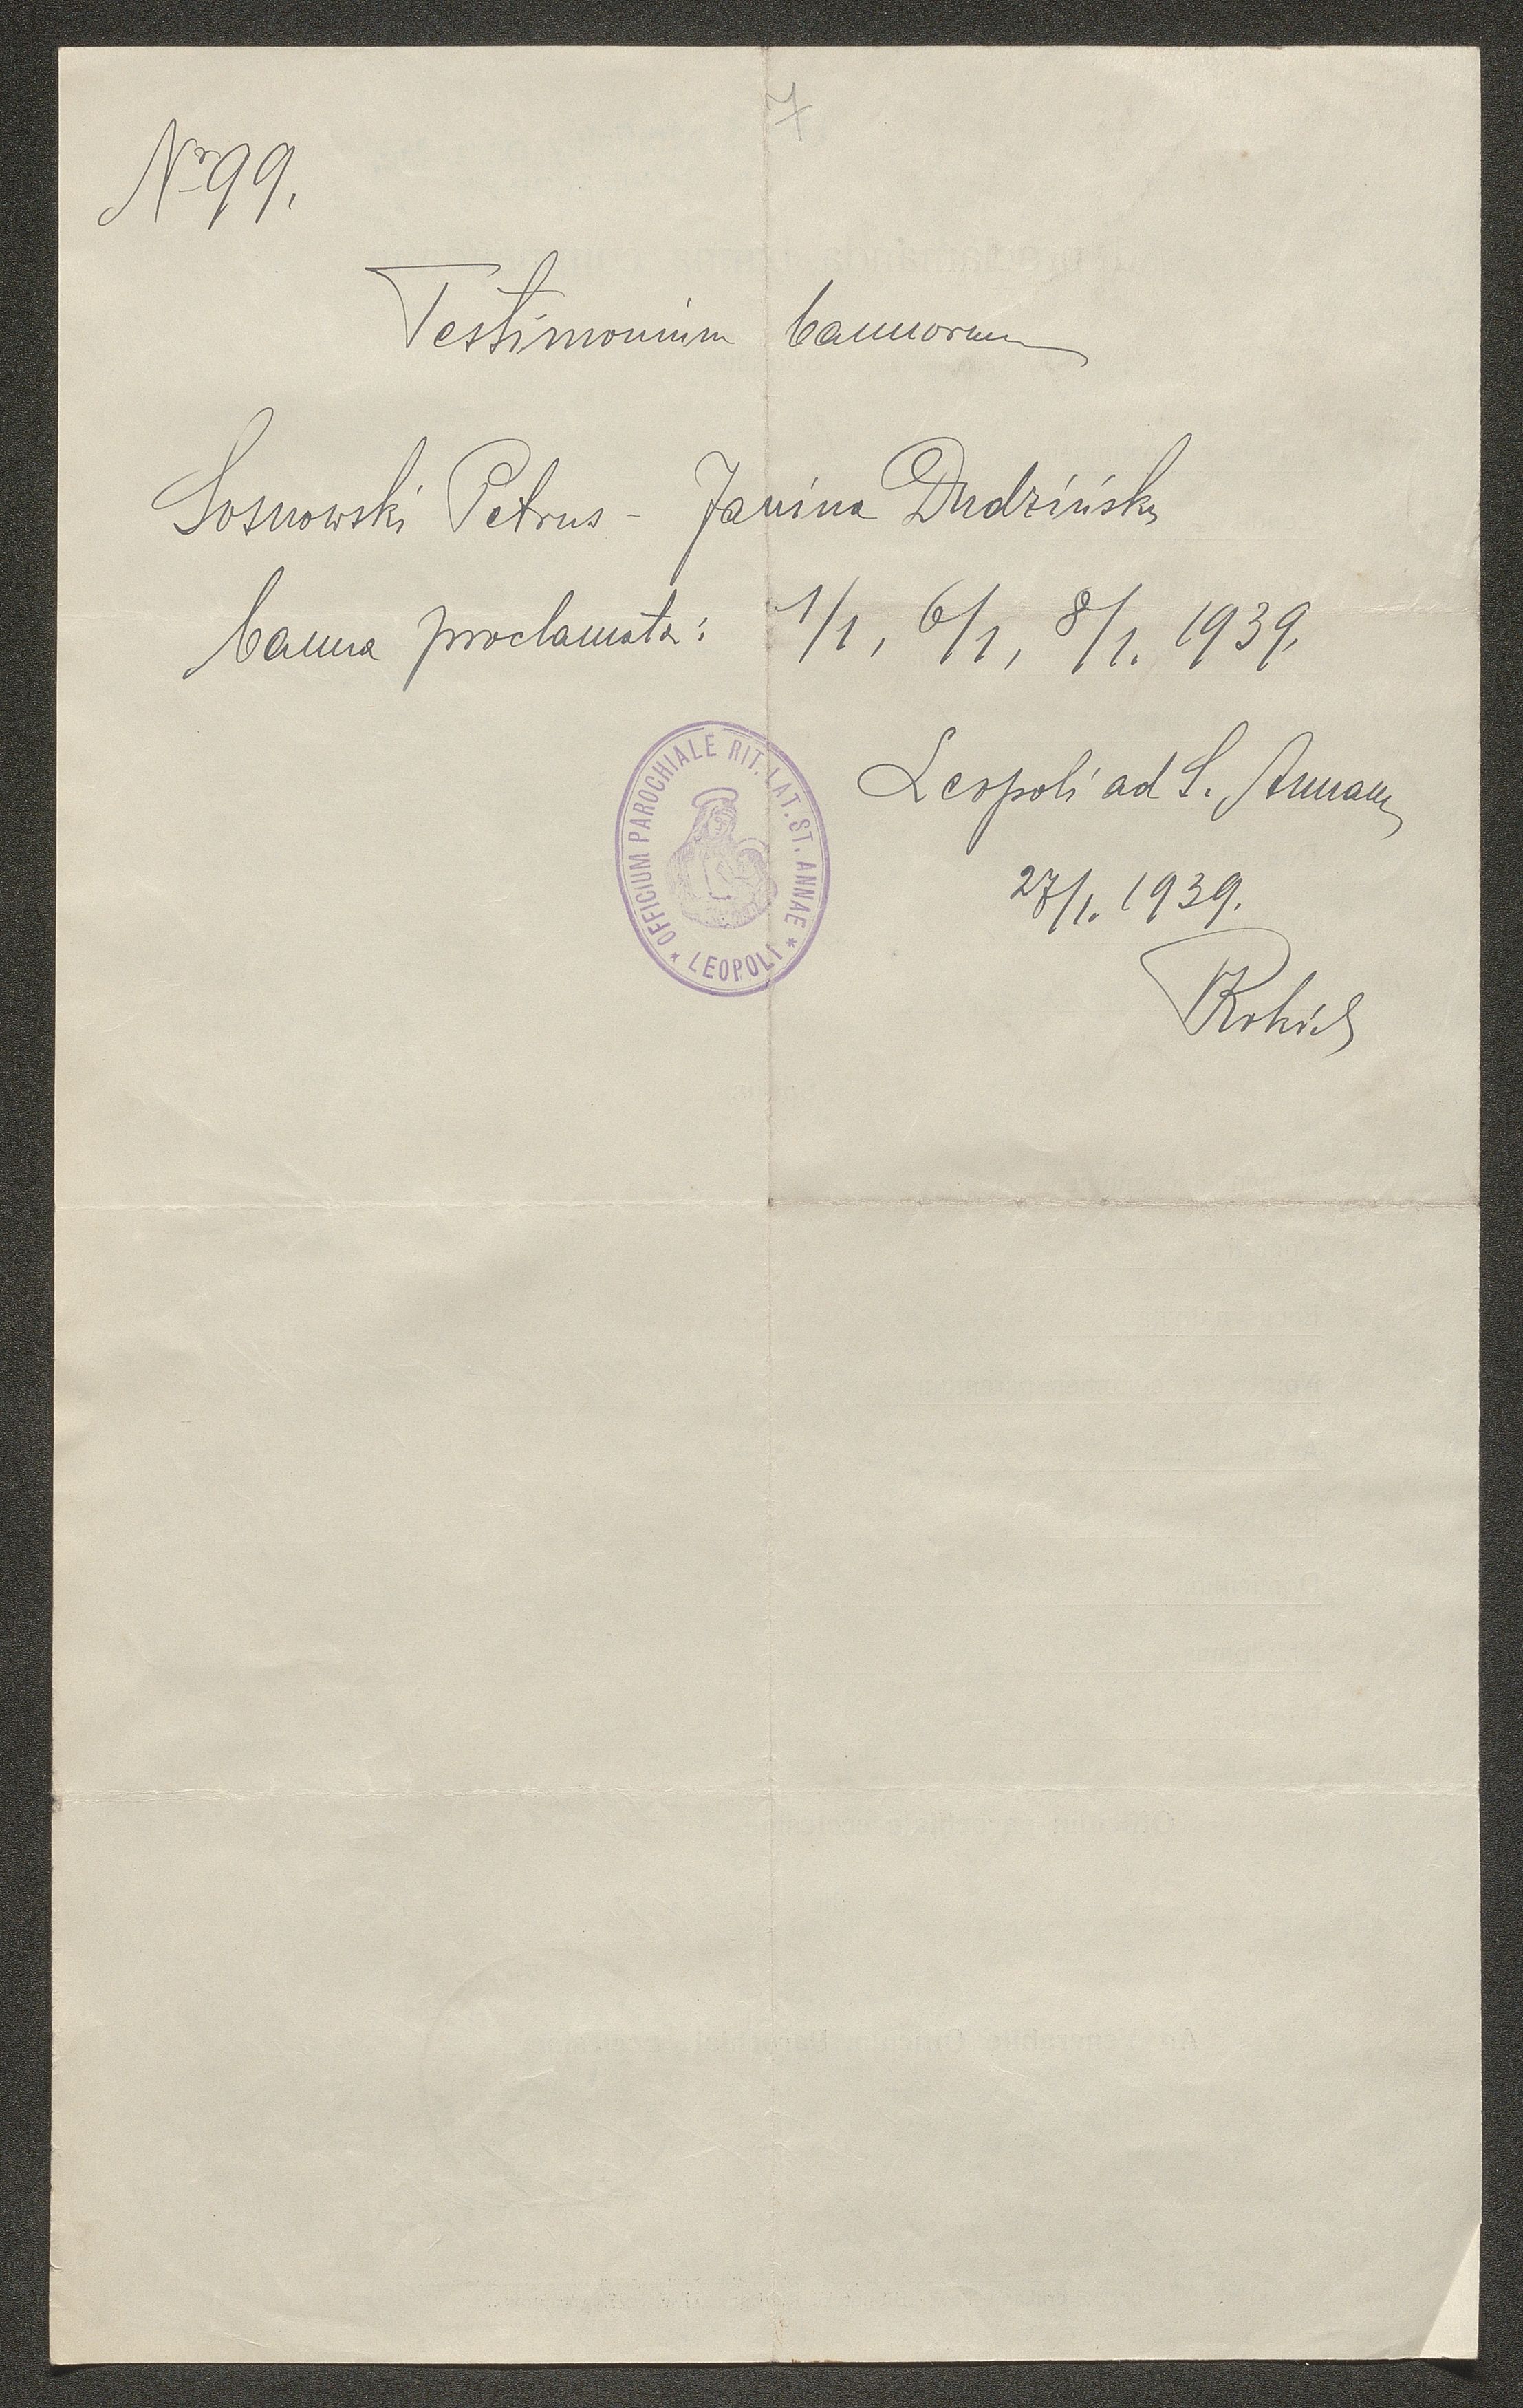 7
Nr 99.
Testimonium bannorum
Sosnowski Petrus - Janina Dudzińska
banna proclamata: 1/1, 6/1, 8/1. 1939.
OFFICIUM PAROCHIALE RIT. LAT. ST. ANNAE * LEOPOLI *
Leopoli ad S. Annam
27/1. 1939.